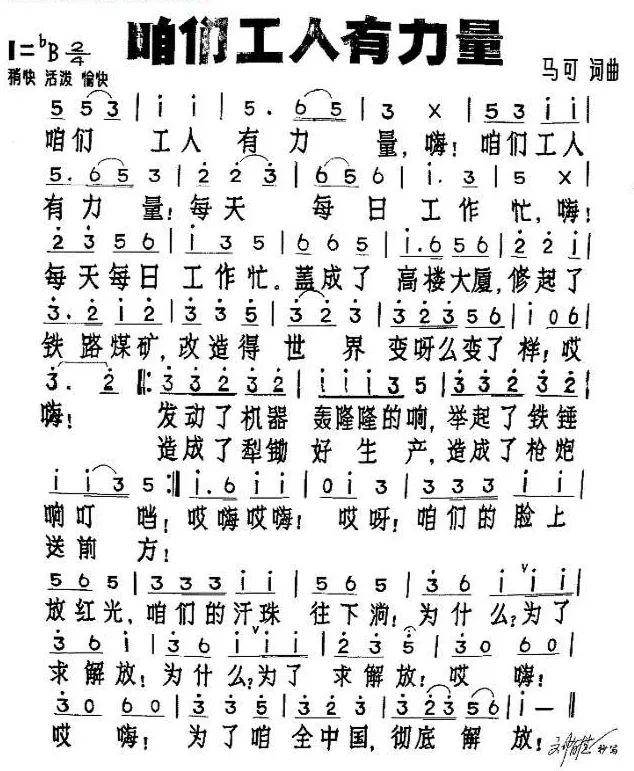 咱们工人有力量
1=♭B 2/4
稍快 活泼 愉快
马可 词曲
5 5 3 | i i | 5 . 6 5 | 3 X | 5 5 3 i i |
咱们 工人 有 力 量,嗨!咱们工人
5 . 6 5 3 | 2̇ 2̇ 3̇ | 6 5 6 | i . 3 | 5 X |
有力 量!每天 每日 工作 忙,嗨!
2̇ 3̇ 5 6 | i 3 5 | 6 6 5 | i . 6 5 6 | 2̇ 2̇ i |
每天每日 工作忙。盖成了 高楼大厦,修起了
3̇ . 2̇ i 2̇ | 3̇ 3̇ 5 | 3̇ 2̇ 3̇ | 3̇ 2̇ 3̇ 5 6 | i 0 6 |
铁路煤矿,改造得 世 界 变呀么变了样!哎
3̇ . 2̇ ‖: 3̇ 3̇ 2̇ 3̇ 2̇ | i i i 3 5 | 3̇ 3̇ 2̇ 3̇ 2̇ |
嗨! 发动了机器 轰隆隆的响,举起了铁锤
造成了犁锄 好生产,造成了枪炮
i i 3 5 :‖ i . 6 i i | 0 i 3 | 3 3 3 i i |
响叮 当!哎嗨哎嗨! 哎呀!咱们的脸上
送前 方!
5 6 5 | 3 3 3 i i | 5 6 5 | 3 6 i | i i i |
放红光,咱们的汗珠 往下淌!为什么?为了
3 6 i | 3 6 i i i | 2̇ 3̇ 5 | 3̇ 0 6 0 |
求解放!为什么?为了 求解放!哎 嗨!
3̇ 0 6 0 | 3̇ 3̇ 5 | 3̇ 2̇ 3̇ | 3̇ 2̇ 3̇ 5 6 | i — ‖
哎 嗨!为了咱 全中国,彻底 解 放!